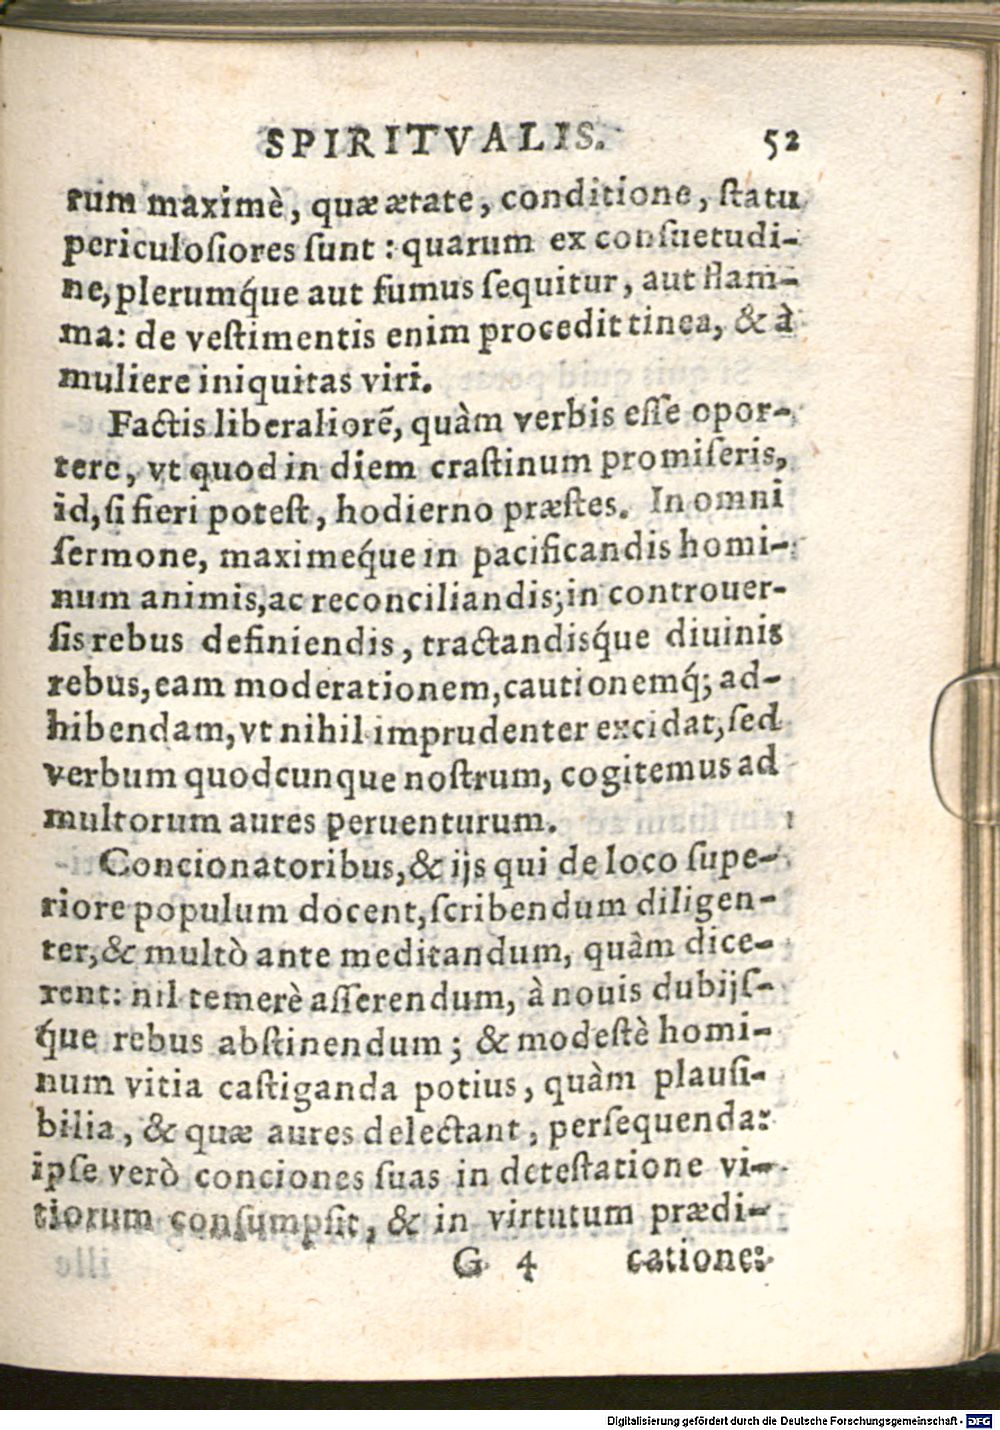 SPIRITVALIS. 52
rum maximè, quæ ætate, conditione, ſtatu
periculoſiores ſunt : quarum ex conſuetudi-
ne, plerumq́ue aut fumus ſequitur, aut flam-
ma: de veſtimentis enim procedit tinea, & à
muliere iniquitas viri.
Factis liberaliorẽ, quàm verbis eſſe opor-
tere, vt quod in diem craſtinum promiſeris,
id, ſi fieri poteſt, hodierno præſtes. In omni
ſermone, maximeq́ue in pacificandis homi-
num animis, ac reconciliandis; in controuer-
ſis rebus definiendis, tractandisq́ue diuinis
rebus, eam moderationem, cautionemq́; ad-
hibendam, vt nihil imprudenter excidat, ſed
verbum quodcunque noſtrum, cogitemus ad
multorum aures peruenturum.
Concionatoribus, & ijs qui de loco ſupe-
riore populum docent, ſcribendum diligen-
ter, & multò ante meditandum, quàm dice-
rent: nil temerè aſſerendum, à nouis dubijſ-
q́ue rebus abſtinendum; & modeſtè homi-
num vitia caſtiganda potius, quàm plauſi-
bilia, & quæ aures delectant, perſequenda:
ipſe verò conciones ſuas in deteſtatione vi-
tiorum conſumpſit, & in virtutum prædi-
G 4 catione:
Digitalisierung gefördert durch die Deutsche Forschungsgemeinschaft - DFG